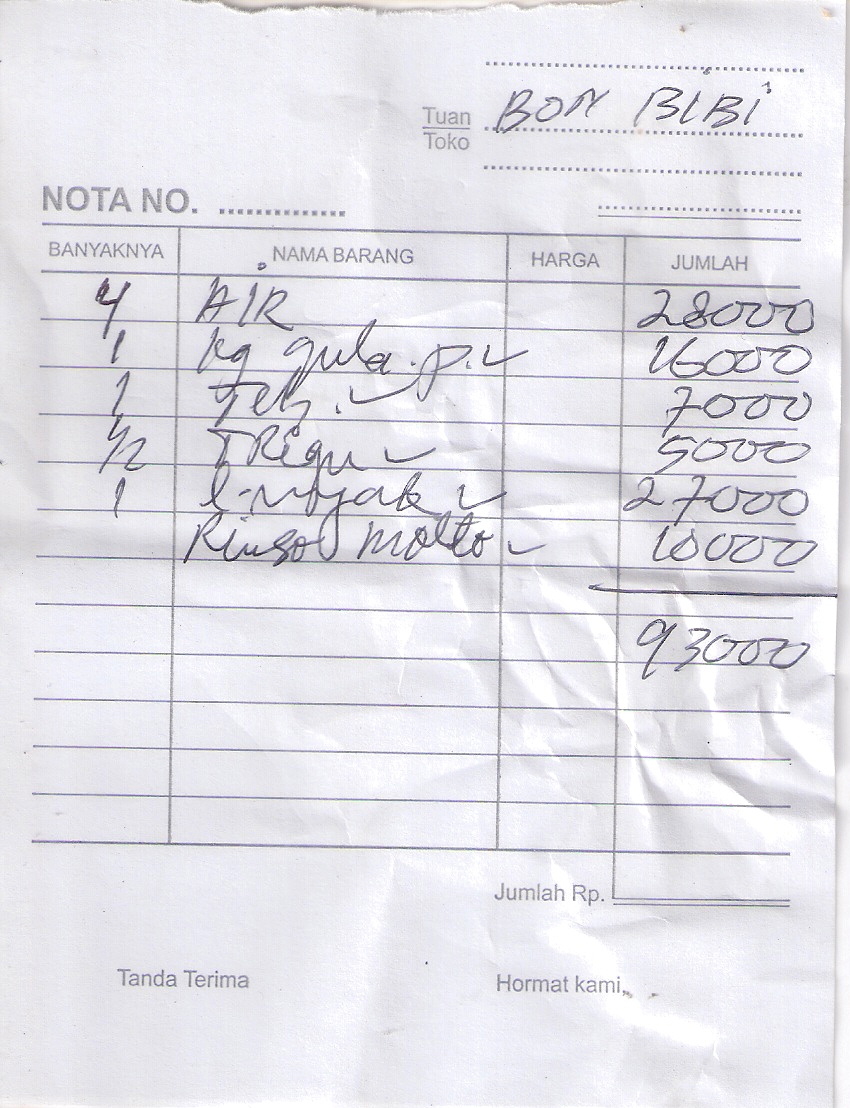 Tuan
Toko
BON BIBI
NOTA NO. ............
BANYAKNYA NAMA BARANG HARGA JUMLAH
4 AIR 28000
1 kg gula.p. ✓ 16000
1 Teh. ✓ 7000
1/2 TRigu ✓ 5000
1 l-minyak ✓ 27000
Rinso molto ✓ 10000
93000
Jumlah Rp.
Tanda Terima Hormat kami,